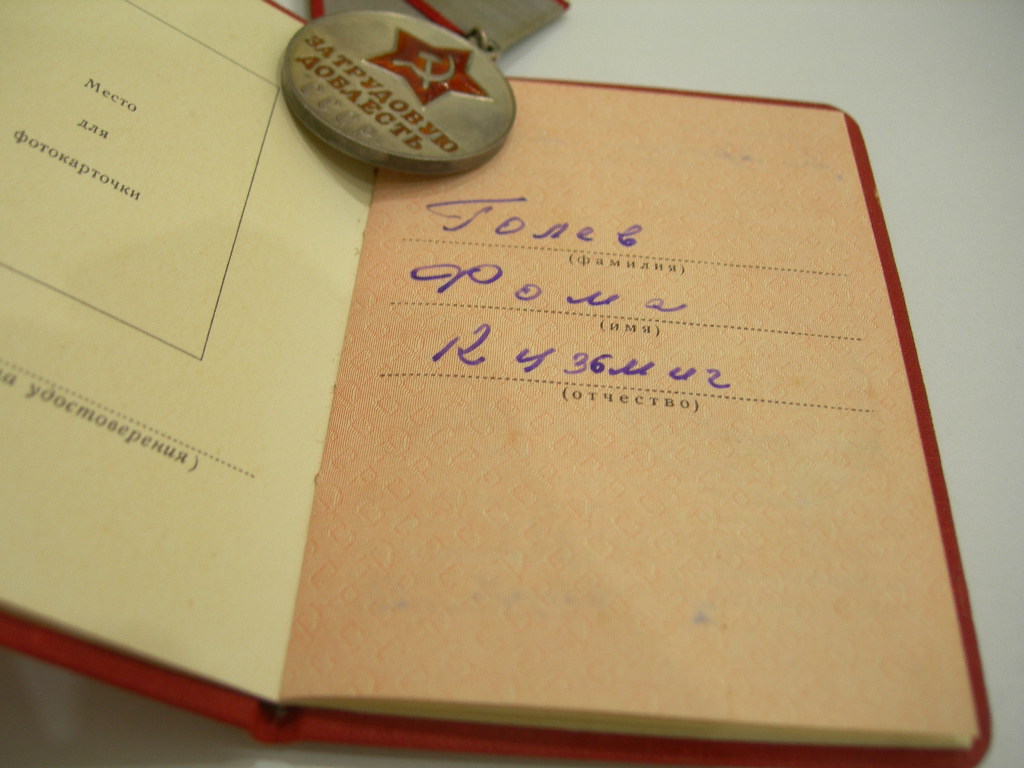 Место
для
фотокарточки
удостоверения)
ЗА ТРУДОВУЮ
ДОБЛЕСТЬ
СССР
Голев
(фамилия)
Фома
(имя)
Кузьмич
(отчество)